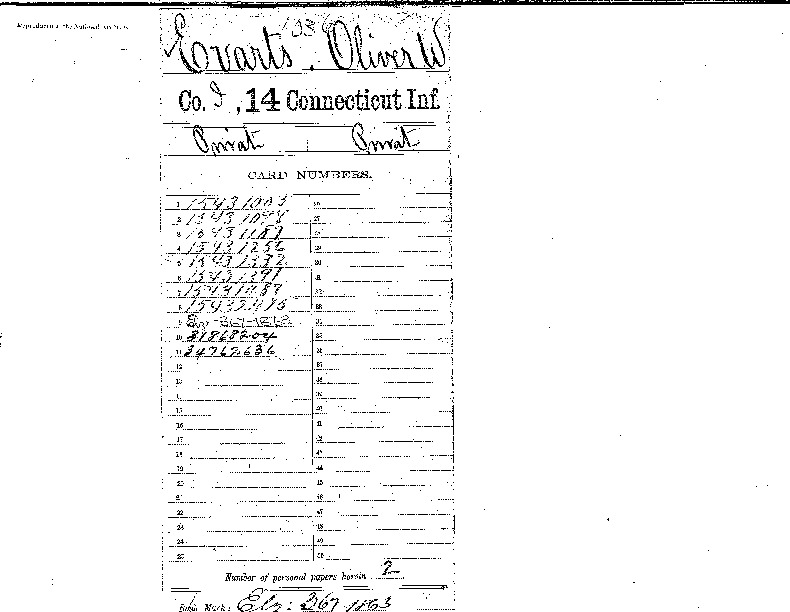 Reproduced at the National Archives
1036
Evarts, Oliver W
Co. I, 14 Connecticut Inf.
Privat Privat
CARD NUMBERS.
1 15431003 26
2 27
3 15431187 28
4 15431256 29
5 15431332 30
6 15431391 31
7 15431487 32
8 15432416 33
9 34
10 31868204 35
11 34762636 36
12 37
13 38
14 39
15 40
16 41
17 42
18 43
19 44
20 45
21 46
22 47
23 48
24 49
25 50
Number of personal papers herein 2
Book Mark: 367 1863